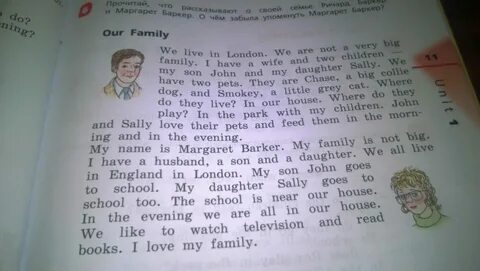 Прочитай, что рассказывают о своей семье Ричард Баркер
и Маргарет Баркер. О чём забыла упомянуть Маргарет Баркер?
do?
?
Our Family
We live in London. We are not a very big
family. I have a wife and two children —
my son John and my daughter Sally. We
have two pets. They are Chase, a big collie
dog, and Smokey, a little grey cat. Where
do they live? In our house. Where do they
play? In the park with my children. John
and Sally love their pets and feed them in the morn-
ing and in the evening.
My name is Margaret Barker. My family is not big.
I have a husband, a son and a daughter. We all live
in England in London. My son John goes
to school. My daughter Sally goes to
school too. The school is near our house.
In the evening we are all in our house.
We like to watch television and read
books. I love my family.
11
Unit 1